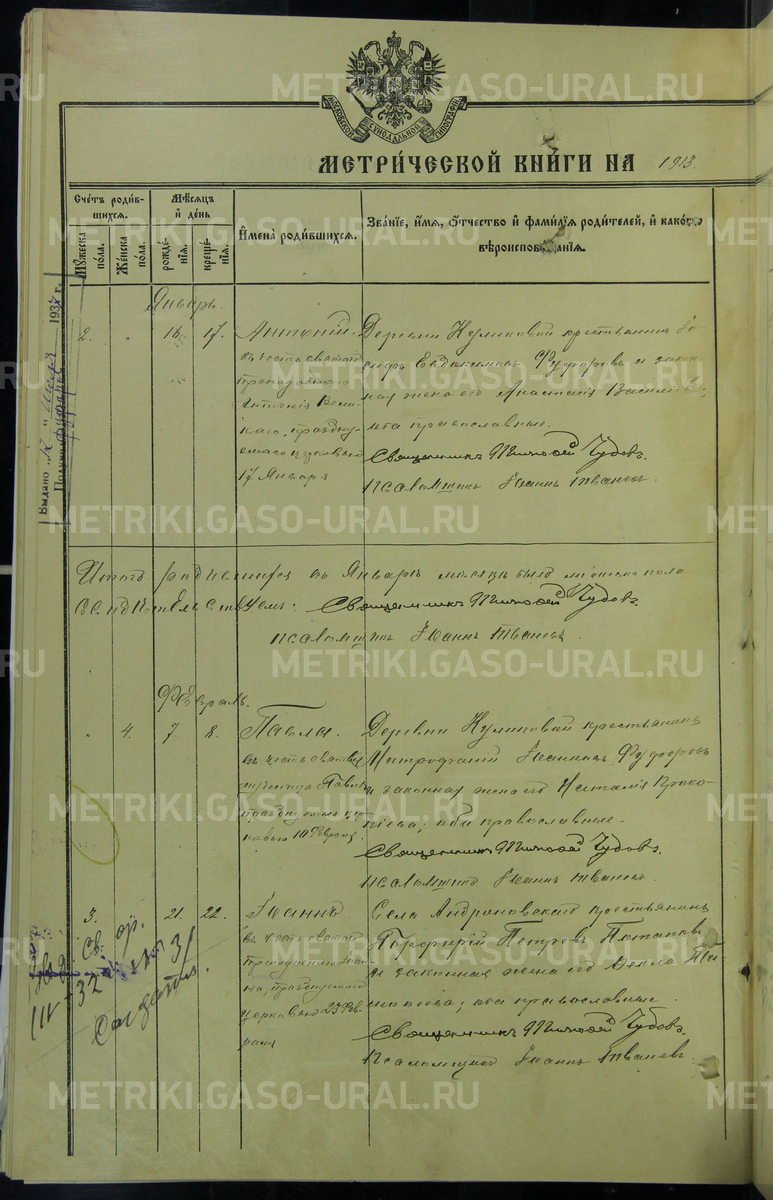 МОСКОВСКОЙ СѴНОДАЛЬНОЙ ТИПОГРАФІИ
МЕТРИ́ЧЕСКОЙ КНИ́ГИ НА 1913.
Сче́тъ роди́в-
шихся.
Му́жеска
по́ла.
Же́нска
по́ла.
Мѣ́сяцъ
и де́нь
рожде́-
нія.
креще́-
нія.
Имена̀ роди́вшихся.
Зва́ніе, и́мя, о́тчество и фами́лія роди́телей, и како́го
вѣроисповѣ́данія.
Январь.
2. " 17.
Антоній.
въ честь святаго
преподобнаго
Антонія Вели-
каго, праздну-
емаго церковью
17 Января
Деревни Куликовой крестьянинъ Іо-
сифъ Евдокимовъ Фуфаровъ и закон-
ная жена его Анастасія Василье-
ва православные.
Священникъ Тимофей Чудовъ.
Псаломщикъ Іоаннъ
Выдано 193 г.
Итого родившихся въ Январѣ мѣсяцѣ было мужеска пола
Священникъ Тимофей Чудовъ.
Псаломщикъ Іоаннъ
Февраль.
" 4. 7 8.
Павла.
въ честь святыя
мученицы Павлы
празднуемыя цер-
ковью 10 Февраля
Деревни Куликовой крестьянинъ
Митрофаній Іоанновъ
и законная жена его Наталія Проко-
піева; оба православные.
Священникъ Тимофей Чудовъ.
Псаломщикъ Іоаннъ
3. 21. 22.
Іоаннъ
въ честь святаго
преподобнаго Іоан-
на, празднуемаго
церковью 23 Фев-
раля
Села Андроновскаго крестьянинъ
Порфирій Петровъ Потаповъ
и законная жена его Ѳекла
оба православные.
Священникъ Тимофей Чудовъ.
Псаломщикъ Іоаннъ
METRIKI.GASO-URAL.RU